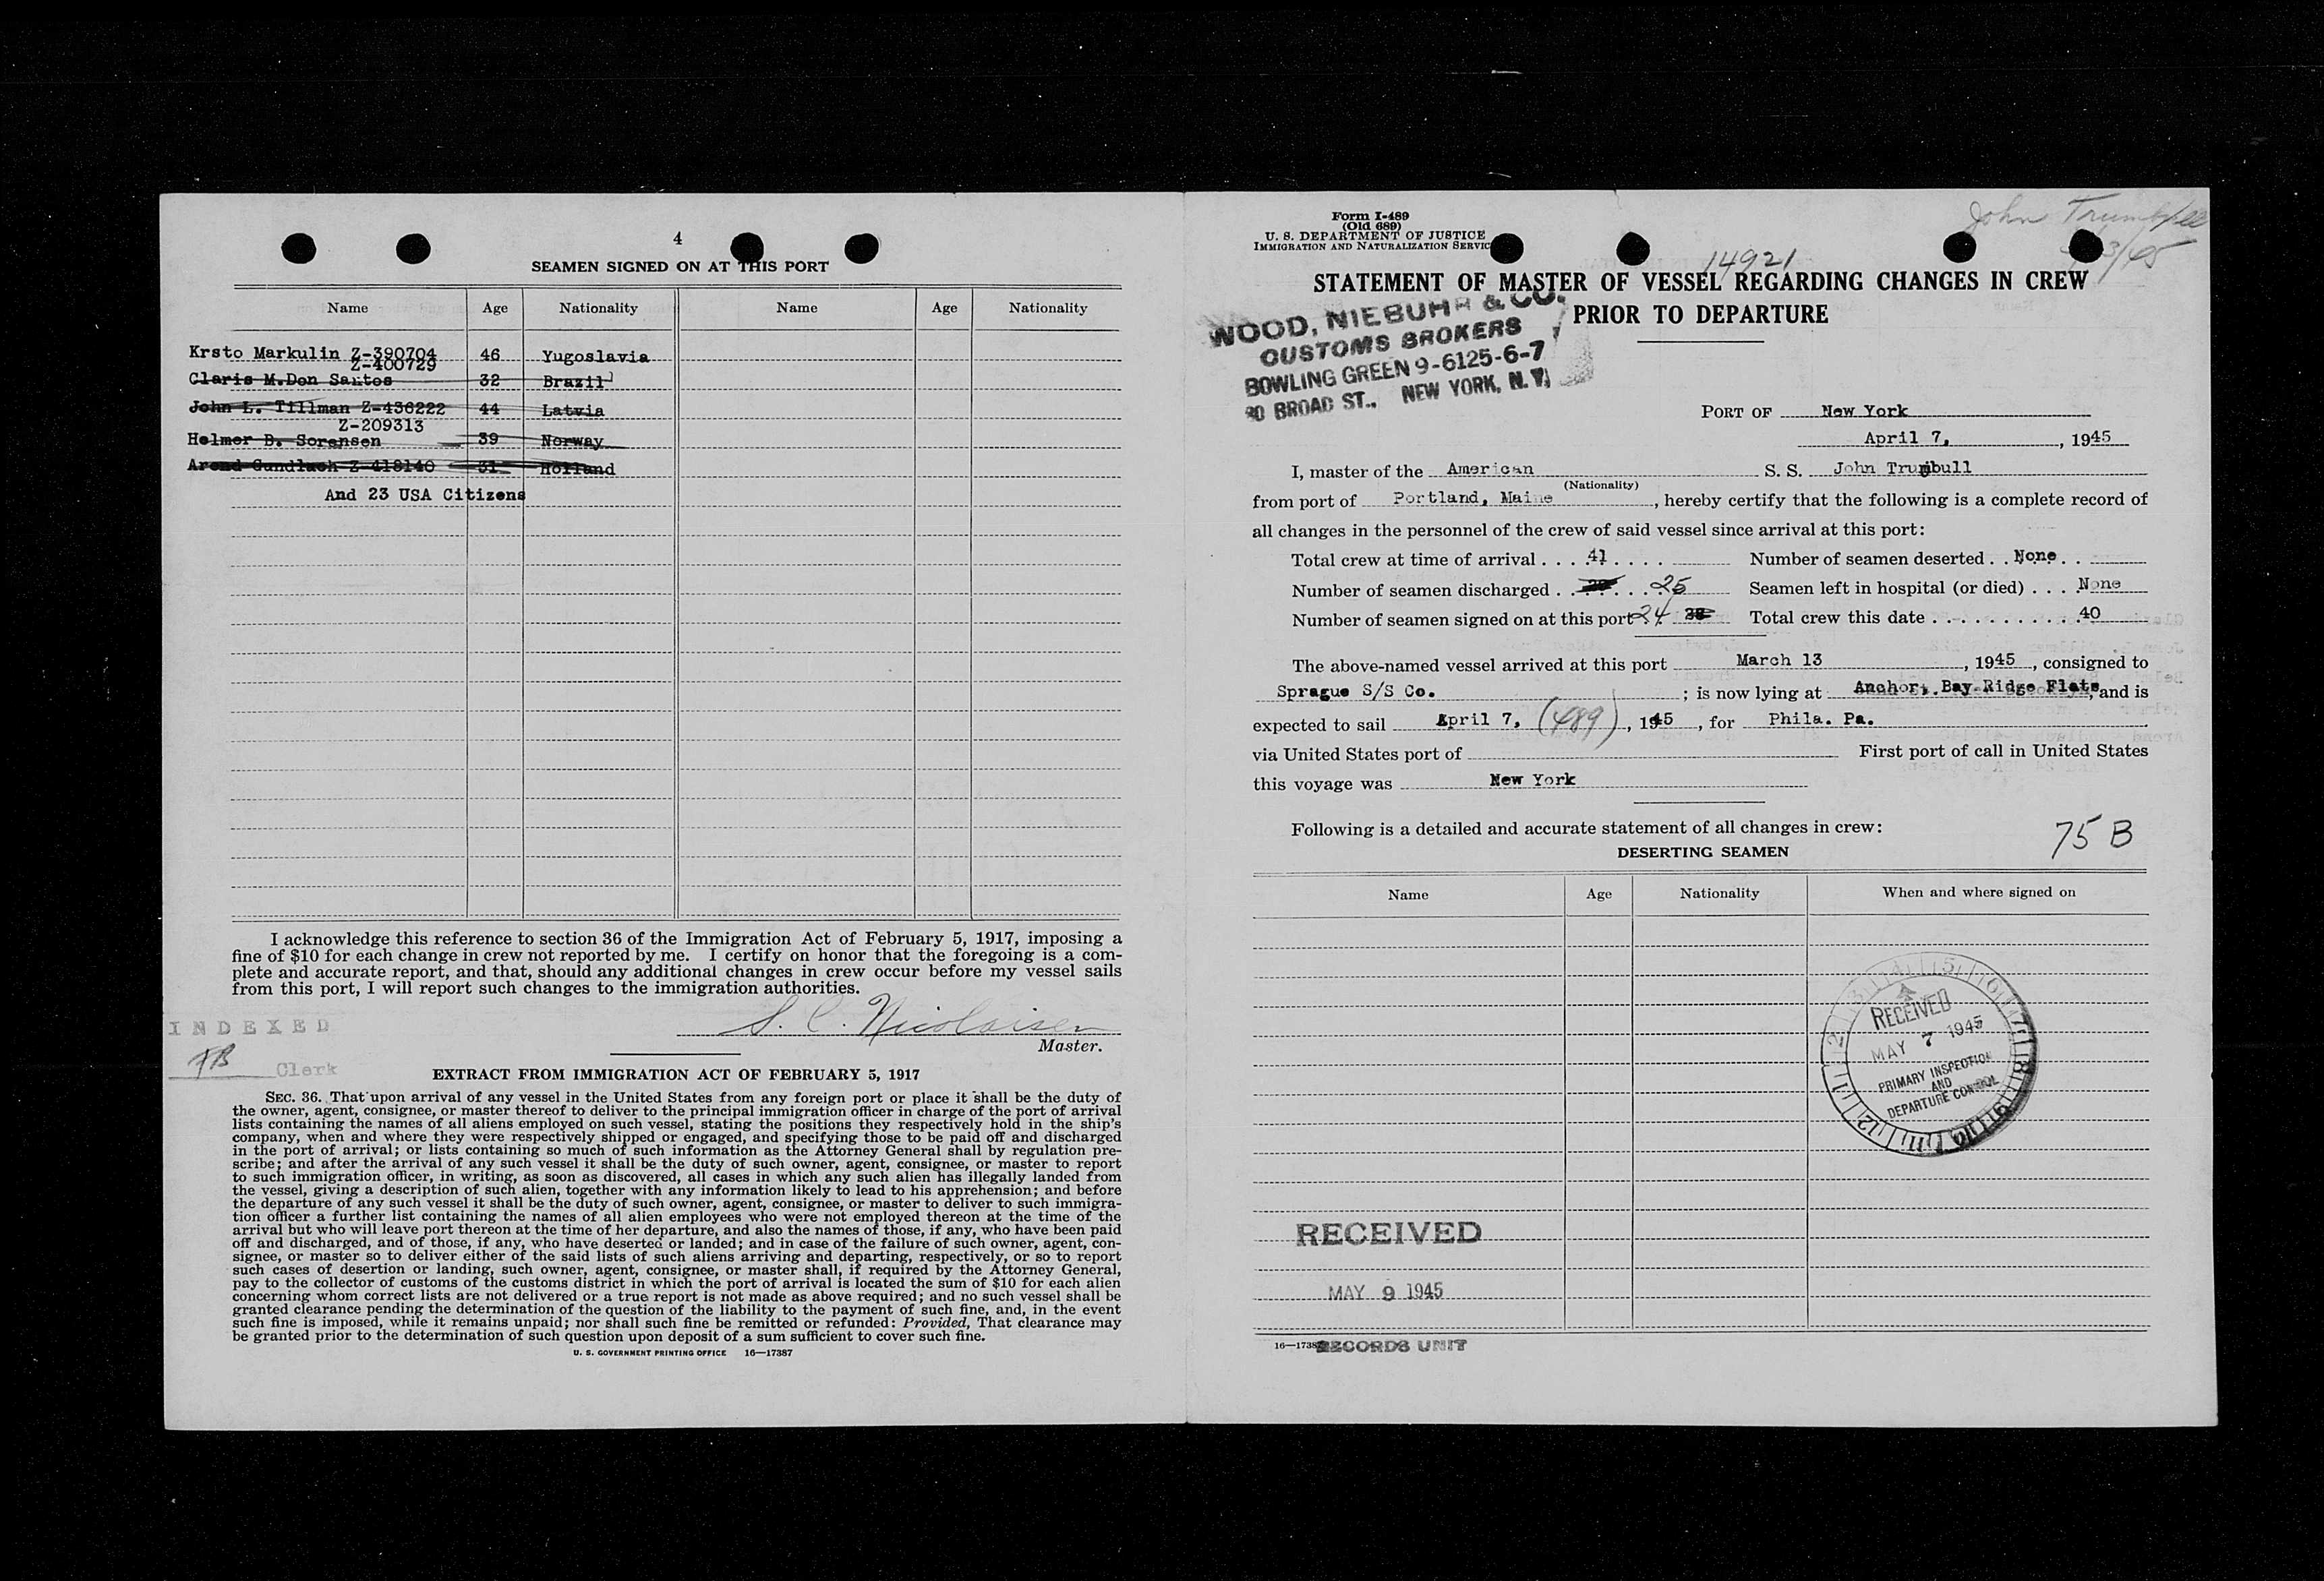 4
SEAMEN SIGNED ON AT THIS PORT
Name Age Nationality Name Age Nationality
Krsto Markulin Z-390704 46 Yugoslavia
Z-400729
Claris M.Don Santos 32 Brazil
John L. Tillman Z-436222 44 Latvia
Z-209313
Helmer B. Sorensen 39 Norway
Arend Gundlach Z-418140 31 Holland
And 23 USA Citizens
I acknowledge this reference to section 36 of the Immigration Act of February 5, 1917, imposing a
fine of $10 for each change in crew not reported by me. I certify on honor that the foregoing is a com-
plete and accurate report, and that, should any additional changes in crew occur before my vessel sails
from this port, I will report such changes to the immigration authorities.
S. C. Nicolaisen
Master.
INDEXED
FB Clerk
EXTRACT FROM IMMIGRATION ACT OF FEBRUARY 5, 1917
SEC. 36. That upon arrival of any vessel in the United States from any foreign port or place it shall be the duty of
the owner, agent, consignee, or master thereof to deliver to the principal immigration officer in charge of the port of arrival
lists containing the names of all aliens employed on such vessel, stating the positions they respectively hold in the ship's
company, when and where they were respectively shipped or engaged, and specifying those to be paid off and discharged
in the port of arrival; or lists containing so much of such information as the Attorney General shall by regulation pre-
scribe; and after the arrival of any such vessel it shall be the duty of such owner, agent, consignee, or master to report
to such immigration officer, in writing, as soon as discovered, all cases in which any such alien has illegally landed from
the vessel, giving a description of such alien, together with any information likely to lead to his apprehension; and before
the departure of any such vessel it shall be the duty of such owner, agent, consignee, or master to deliver to such immigra-
tion officer a further list containing the names of all alien employees who were not employed thereon at the time of the
arrival but who will leave port thereon at the time of her departure, and also the names of those, if any, who have been paid
off and discharged, and of those, if any, who have deserted or landed; and in case of the failure of such owner, agent, con-
signee, or master so to deliver either of the said lists of such aliens arriving and departing, respectively, or so to report
such cases of desertion or landing, such owner, agent, consignee, or master shall, if required by the Attorney General,
pay to the collector of customs of the customs district in which the port of arrival is located the sum of $10 for each alien
concerning whom correct lists are not delivered or a true report is not made as above required; and no such vessel shall be
granted clearance pending the determination of the question of the liability to the payment of such fine, and, in the event
such fine is imposed, while it remains unpaid; nor shall such fine be remitted or refunded: Provided, That clearance may
be granted prior to the determination of such question upon deposit of a sum sufficient to cover such fine.
U. S. GOVERNMENT PRINTING OFFICE 16—17387
Form I-489
(Old 689)
U. S. DEPARTMENT OF JUSTICE
IMMIGRATION AND NATURALIZATION SERVIC
John Trumbull
3/45
14921
STATEMENT OF MASTER OF VESSEL REGARDING CHANGES IN CREW
PRIOR TO DEPARTURE
WOOD, NIEBUHR & CO.
CUSTOMS BROKERS
BOWLING GREEN 9-6125-6-7
80 BROAD ST., NEW YORK, N. Y.
PORT OF New York
April 7, , 1945
I, master of the American S. S. John Trumbull
(Nationality)
from port of Portland, Maine , hereby certify that the following is a complete record of
all changes in the personnel of the crew of said vessel since arrival at this port:
Total crew at time of arrival . . . . 41 . . . . Number of seamen deserted . . None . .
Number of seamen discharged . . 25 Seamen left in hospital (or died) . . . None
Number of seamen signed on at this port 24 28 Total crew this date . . . . . . . . . . . 40
The above-named vessel arrived at this port March 13 , 1945 , consigned to
Sprague S/S Co. ; is now lying at Anchor, Bay Ridge Flats, and is
expected to sail April 7, (489) , 1945 , for Phila. Pa.
via United States port of First port of call in United States
this voyage was New York
Following is a detailed and accurate statement of all changes in crew:
75 B
DESERTING SEAMEN
Name Age Nationality When and where signed on
RECEIVED
MAY 7 1945
PRIMARY INSPECTION
AND
DEPARTURE CONTROL
RECEIVED
MAY 9 1945
RECORDS UNIT
16—1738